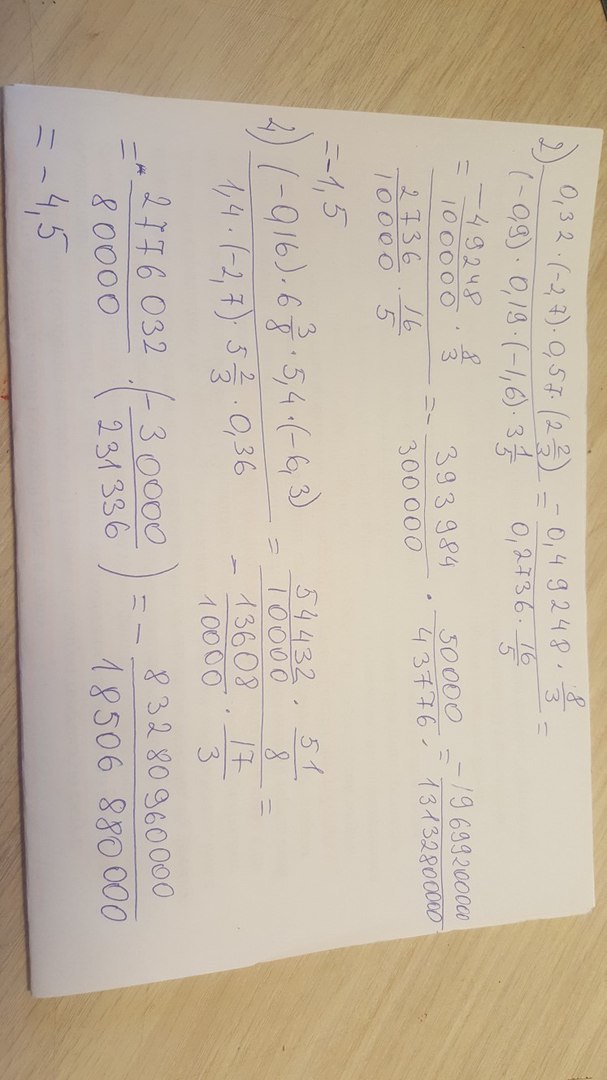 2) 0,32 · (-2,7) · 0,57 · (2 2/3) / (-0,9) · 0,19 · (-1,6) · 3 1/5 = -0,49248 · 8/3 / 0,2736 · 16/5 =
= -49248/100000 · 8/3 / 2736/10000 · 16/5 = - 393984/300000 · 50000/43776 = -19699200000/13132800000
= -1,5
4) (-0,16) · 6 3/8 · 5,4 · (-6,3) / 1,4 · (-2,7) · 5 2/3 · 0,36 = 54432/10000 · 51/8 / - 13608/10000 · 17/3 =
= 2776032/80000 · (- 30000/231336) = - 83280960000/18506880000
= -4,5